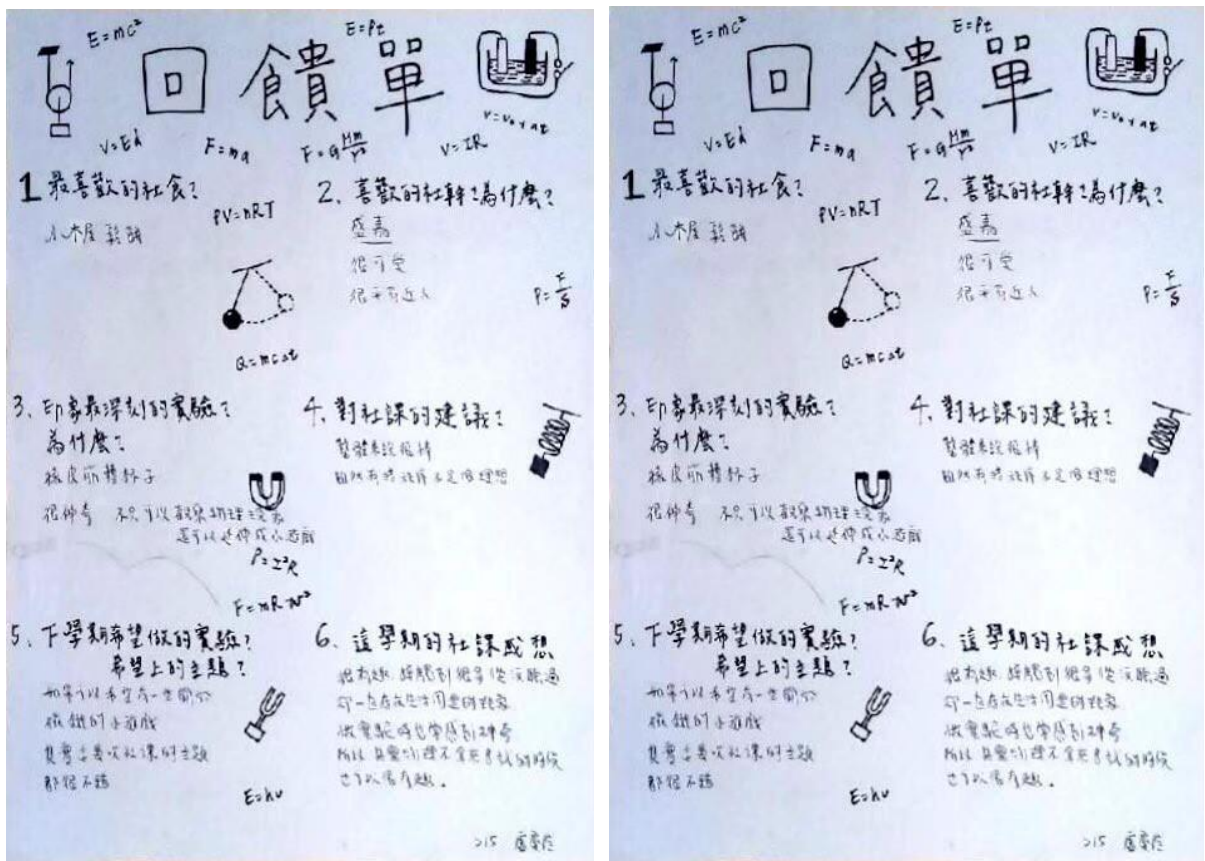 E=mc²
E=Pt
回饋單
V=V₀+at
V=Ed
F=ma
F=G Mm/r²
V=IR
1 最喜歡的社食?
小木屋鬆餅
PV=nRT
2. 喜歡的社幹?為什麼?
很可愛
很平易近人
P=F/S
Q=mcΔt
3. 印象最深刻的實驗?
為什麼?
橡皮筋 杯子
很神奇 不只可以 物理現象
還可以延伸成小遊戲
P=I²R
F=mRW²
4. 對社課的建議?
整體來說很棒
5. 下學期希望做的實驗?
希望上的主題?
如果可以希望有一些
小遊戲
其實主要 社課的主題
都很不錯
E=hν
6. 這學期的社課感想
很有趣 接觸到很多從沒聽過
做實驗時也常感到神奇
所以 物理不拿來考試的時候
也可以很有趣。
215
E=mc²
E=Pt
回饋單
V=V₀+at
V=Ed
F=ma
F=G Mm/r²
V=IR
1 最喜歡的社食?
小木屋鬆餅
PV=nRT
2. 喜歡的社幹?為什麼?
很可愛
很平易近人
P=F/S
Q=mcΔt
3. 印象最深刻的實驗?
為什麼?
橡皮筋 杯子
很神奇 不只可以 物理現象
還可以延伸成小遊戲
P=I²R
F=mRW²
4. 對社課的建議?
整體來說很棒
5. 下學期希望做的實驗?
希望上的主題?
如果可以希望有一些
小遊戲
其實主要 社課的主題
都很不錯
E=hν
6. 這學期的社課感想
很有趣 接觸到很多從沒聽過
做實驗時也常感到神奇
所以 物理不拿來考試的時候
也可以很有趣。
215